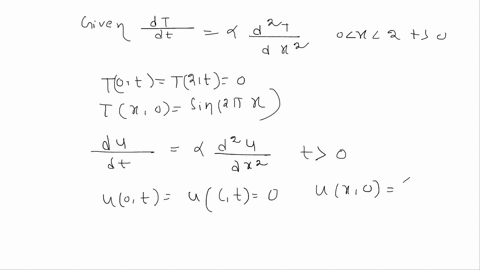 Given dT/dt = α d²T/dx² 0<x<2 t>0
T(0,t)=T(2,t)=0
T(x,0)=Sin(2π x)
du/dt = α d²u/dx² t>0
u(0,t)= u(L,t)=0 u(x,0)=